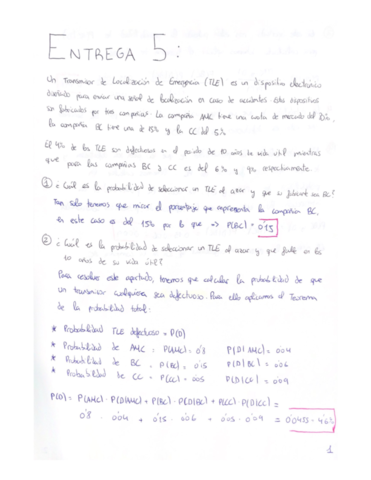 ENTREGA 5:
Un Transmisor de Localización de Emergencia (TLE) es un dispositivo electrónico
diseñado para enviar una señal de localización en caso de accidente. Estos dispositivos
son fabricados por tres compañías. La compañía AMC tiene una cuota de mercado del 80%,
la compañía BC tiene una de 15% y la CC del 5%.
El 4% de los TLE son defectuosos en el periodo de 10 años de vida útil mientras
que para las compañías BC y CC es del 6% y 9% respectivamente.
① ¿Cuál es la probabilidad de seleccionar un TLE al azar y que su fabricante sea BC?
Tan solo tenemos que mirar el porcentaje que representa la compañía BC,
en este caso es del 15% por lo que => P(BC) = 0'15
② ¿Cuál es la probabilidad de seleccionar un TLE al azar y que falle en los
10 años de su vida útil?
Para resolver este apartado, tenemos que calcular la probabilidad de que
un transmisor cualquiera sea defectuoso. Para ello aplicamos el Teorema
de la probabilidad total:
* Probabilidad TLE defectuoso = P(D)
* Probabilidad de AMC = P(AMC) = 0'8 P(D|AMC) = 0'04
* Probabilidad de BC = P(BC) = 0'15 P(D|BC) = 0'06
* Probabilidad de CC = P(CC) = 0'05 P(D|CC) = 0'09
P(D) = P(AMC) · P(D|AMC) + P(BC) · P(D|BC) + P(CC) · P(D|CC) =
0'8 · 0'04 + 0'15 · 0'06 + 0'05 · 0'09 = 0'0455
1